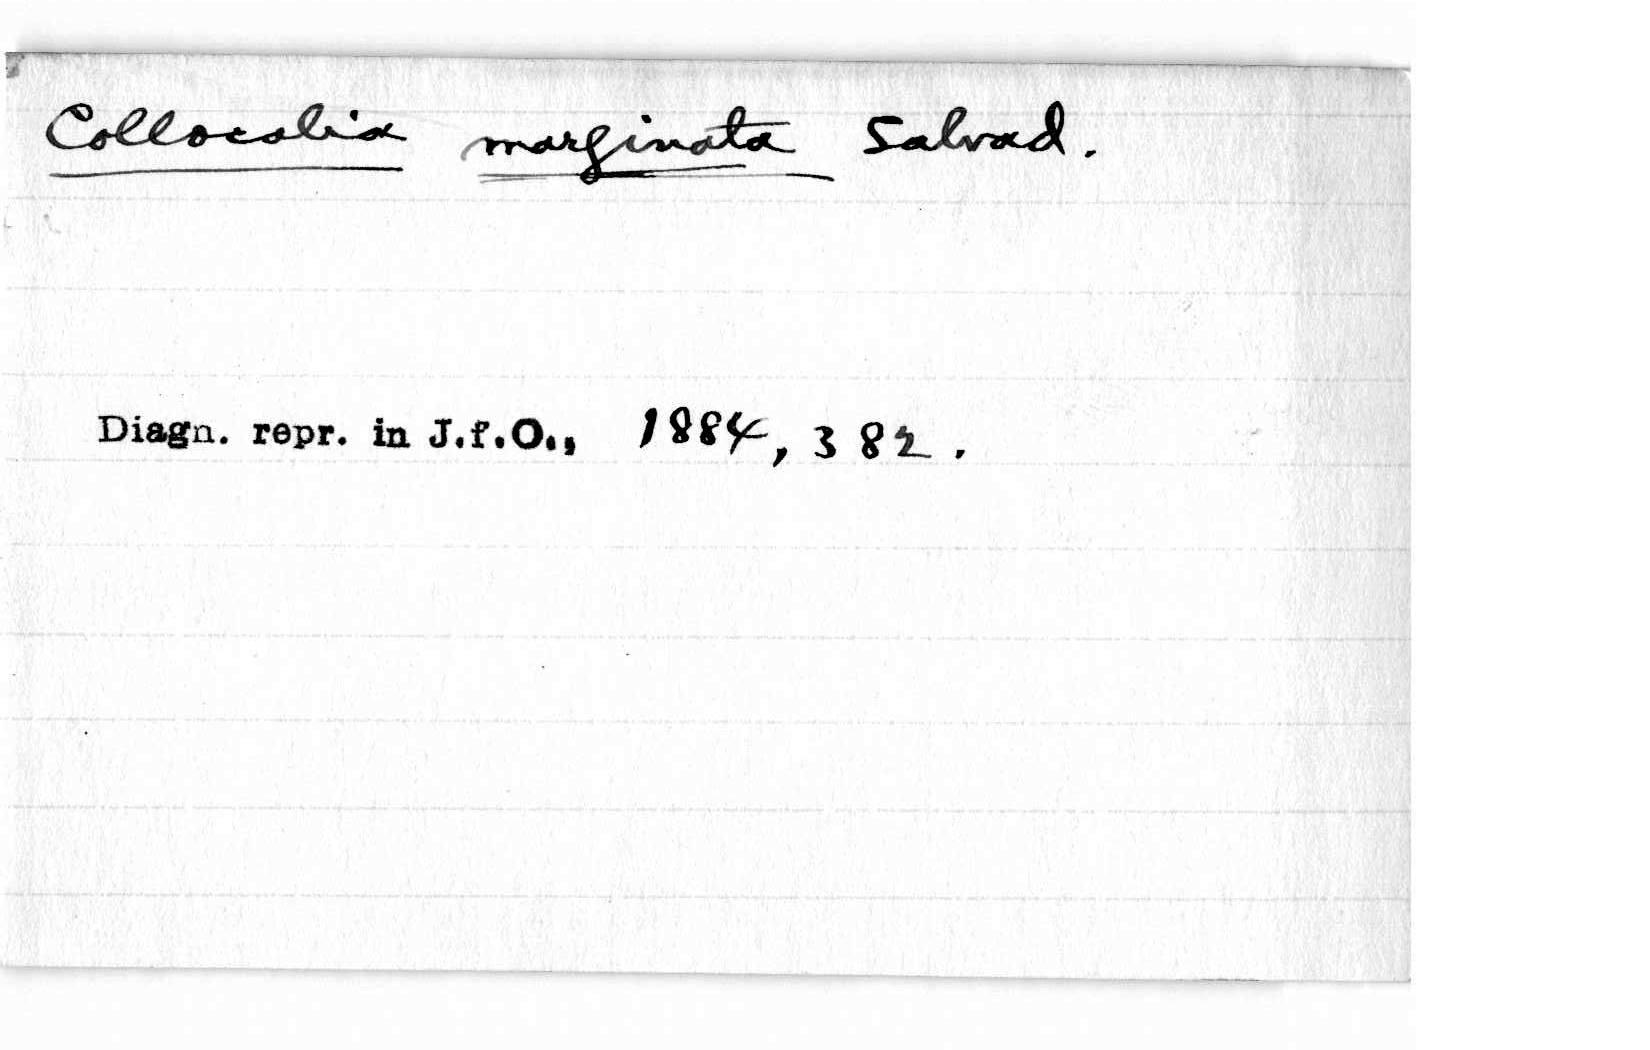 Collocalia marginata Salvad.
Diagn. repr. in J.f.O., 1884, 382.